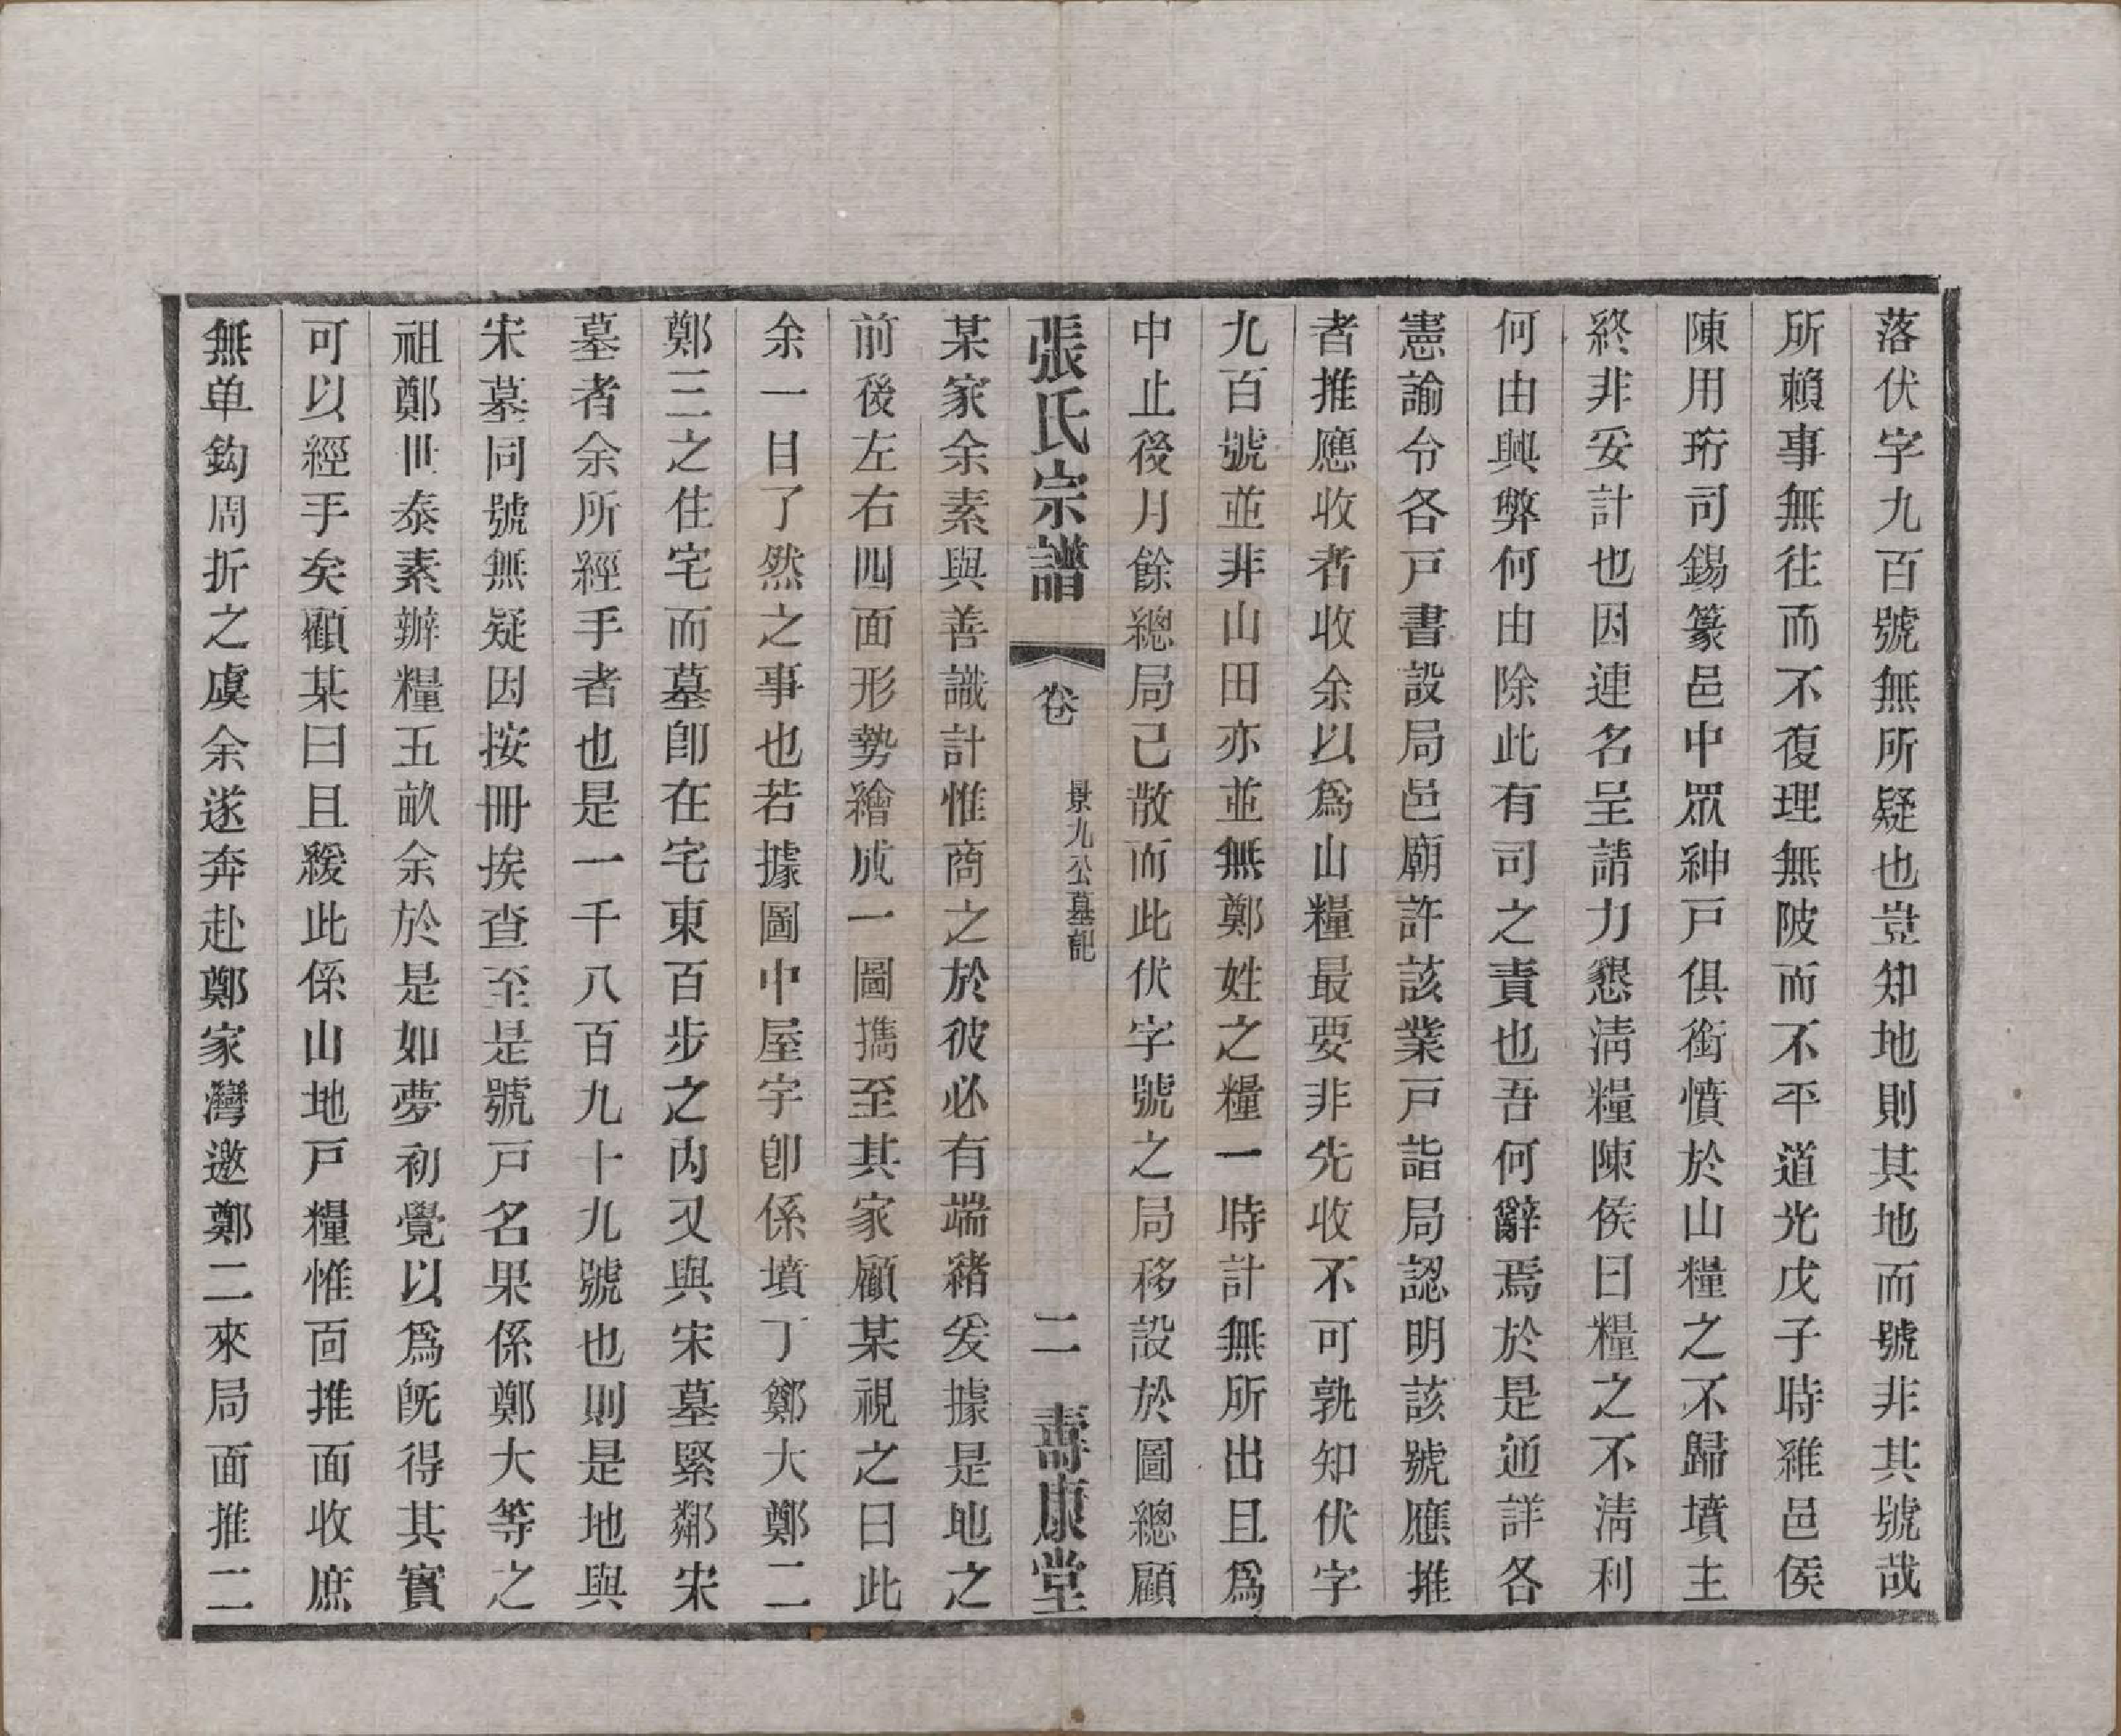 落伏字九百號無所疑也豈知地則其地而號非其號哉
所賴事無往而不復理無陂而不平道光戊子時雒邑侯
陳用珩司錫篆邑中眾紳戸俱銜憤於山糧之不歸墳主
終非妥計也因連名呈請力懇淸糧陳侯曰糧之不淸利
何由興弊何由除此有司之責也吾何辭焉於是通詳各
憲諭令各戸書設局邑廟許該業戸詣局認明該號應推
者推應收者收余以爲山糧最要非先收不可孰知伏字
九百號並非山田亦並無鄭姓之糧一時計無所出且爲
中止後月餘總局已散而此伏字號之局移設於圖總顧
張氏宗譜 卷 景九公墓記 二 壽康堂
某家余素與善識計惟商之於彼必有端緒爰據是地之
前後左右四面形勢繪成一圖攜至其家顧某視之曰此
余一目了然之事也若據圖中屋宇卽係墳丁鄭大鄭二
鄭三之住宅而墓卽在宅東百步之內又與宋墓緊鄰宋
墓者余所經手者也是一千八百九十九號也則是地與
宋墓同號無疑因按冊挨查至是號戸名果係鄭大等之
祖鄭世泰素辦糧五畝余於是如夢初覺以爲旣得其實
可以經手矣顧某曰且緩此係山地戸糧惟面推面收庶
無单鈎周折之虞余遂奔赴鄭家灣邀鄭二來局面推二